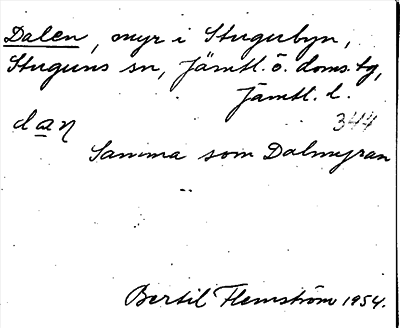 Dalen, myr i Stugubyn,
Stuguns sn, Jämtl. ö. doms. tg,
Jämtl. l.
daņ
344
Samma som Dalmyran
Bertil Flemström 1954.